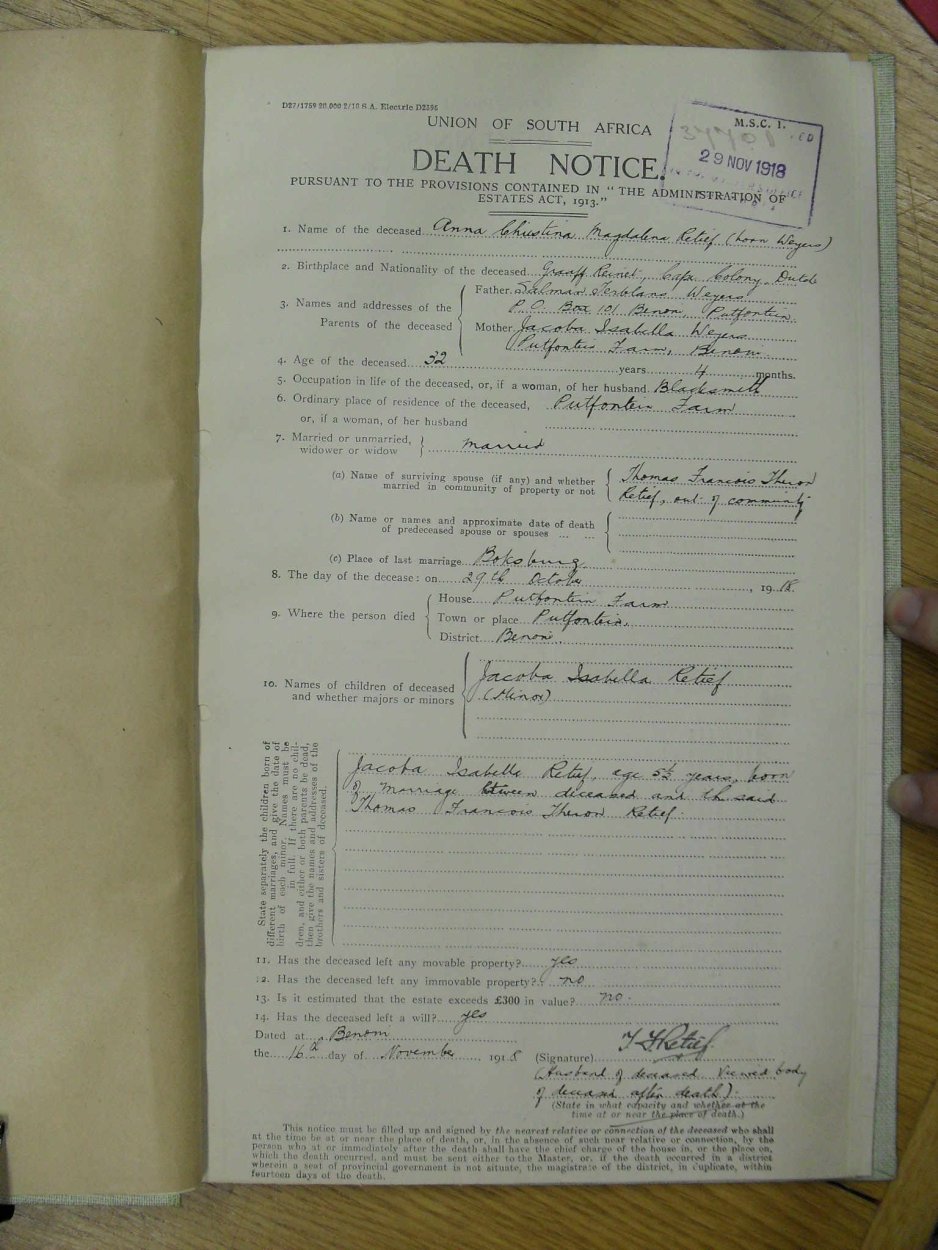 D27/1759 20,000 2/18 S.A. Electric D2395
M.S.C. 1.
UNION OF SOUTH AFRICA
29 NOV 1918
DEATH NOTICE.
PURSUANT TO THE PROVISIONS CONTAINED IN "THE ADMINISTRATION OF
ESTATES ACT, 1913."
1. Name of the deceased Anna Christina Magdalena Retief (born Weyers)
2. Birthplace and Nationality of the deceased Graaff Reinet, Cape Colony, Dutch
3. Names and addresses of the Parents of the deceased
Father Salman Terblans Weyers
P.O. Box 101 Benoni, Putfontein
Mother Jacoba Isabella Weyers
Putfontein Farm, Benoni
4. Age of the deceased 32 years 4 months.
5. Occupation in life of the deceased, or, if a woman, of her husband Blacksmith
6. Ordinary place of residence of the deceased, Putfontein Farm
or, if a woman, of her husband
7. Married or unmarried, widower or widow married
(a) Name of surviving spouse (if any) and whether Thomas Francois Theron
married in community of property or not Retief, out of community
(b) Name or names and approximate date of death
of predeceased spouse or spouses ... ...
(c) Place of last marriage Boksburg
8. The day of the decease: on 29th October, 1918.
9. Where the person died
House Putfontein Farm
Town or place Putfontein.
District Benoni.
10. Names of children of deceased Jacoba Isabella Retief
and whether majors or minors (Minor)
State separately the children born of
different marriages, and give the date of
birth of each minor. Names must be
in full. If there are no chil-
dren, and either or both parents be dead,
then give the names and addresses of the
brothers and sisters of deceased.
Jacoba Isabella Retief, age 5½ years, born
of marriage between deceased and the said
Thomas Francois Theron Retief.
11. Has the deceased left any movable property? yes
12. Has the deceased left any immovable property? no
13. Is it estimated that the estate exceeds £300 in value? no.
14. Has the deceased left a will? yes
Dated at Benoni
the 16th day of November 1918 (Signature) T F Retief
(Husband of deceased. Viewed body
of deceased after death).
(State in what capacity and whether at the
time at or near the place of death.)
This notice must be filled up and signed by the nearest relative or connection of the deceased who shall
at the time be at or near the place of death, or, in the absence of such near relative or connection, by the
person who at or immediately after the death shall have the chief charge of the house in, or the place on,
which the death occurred, and must be sent either to the Master, or, if the death occurred in a district
wherein a seat of provincial government is not situate, the magistrate of the district, in duplicate, within
fourteen days of the death.